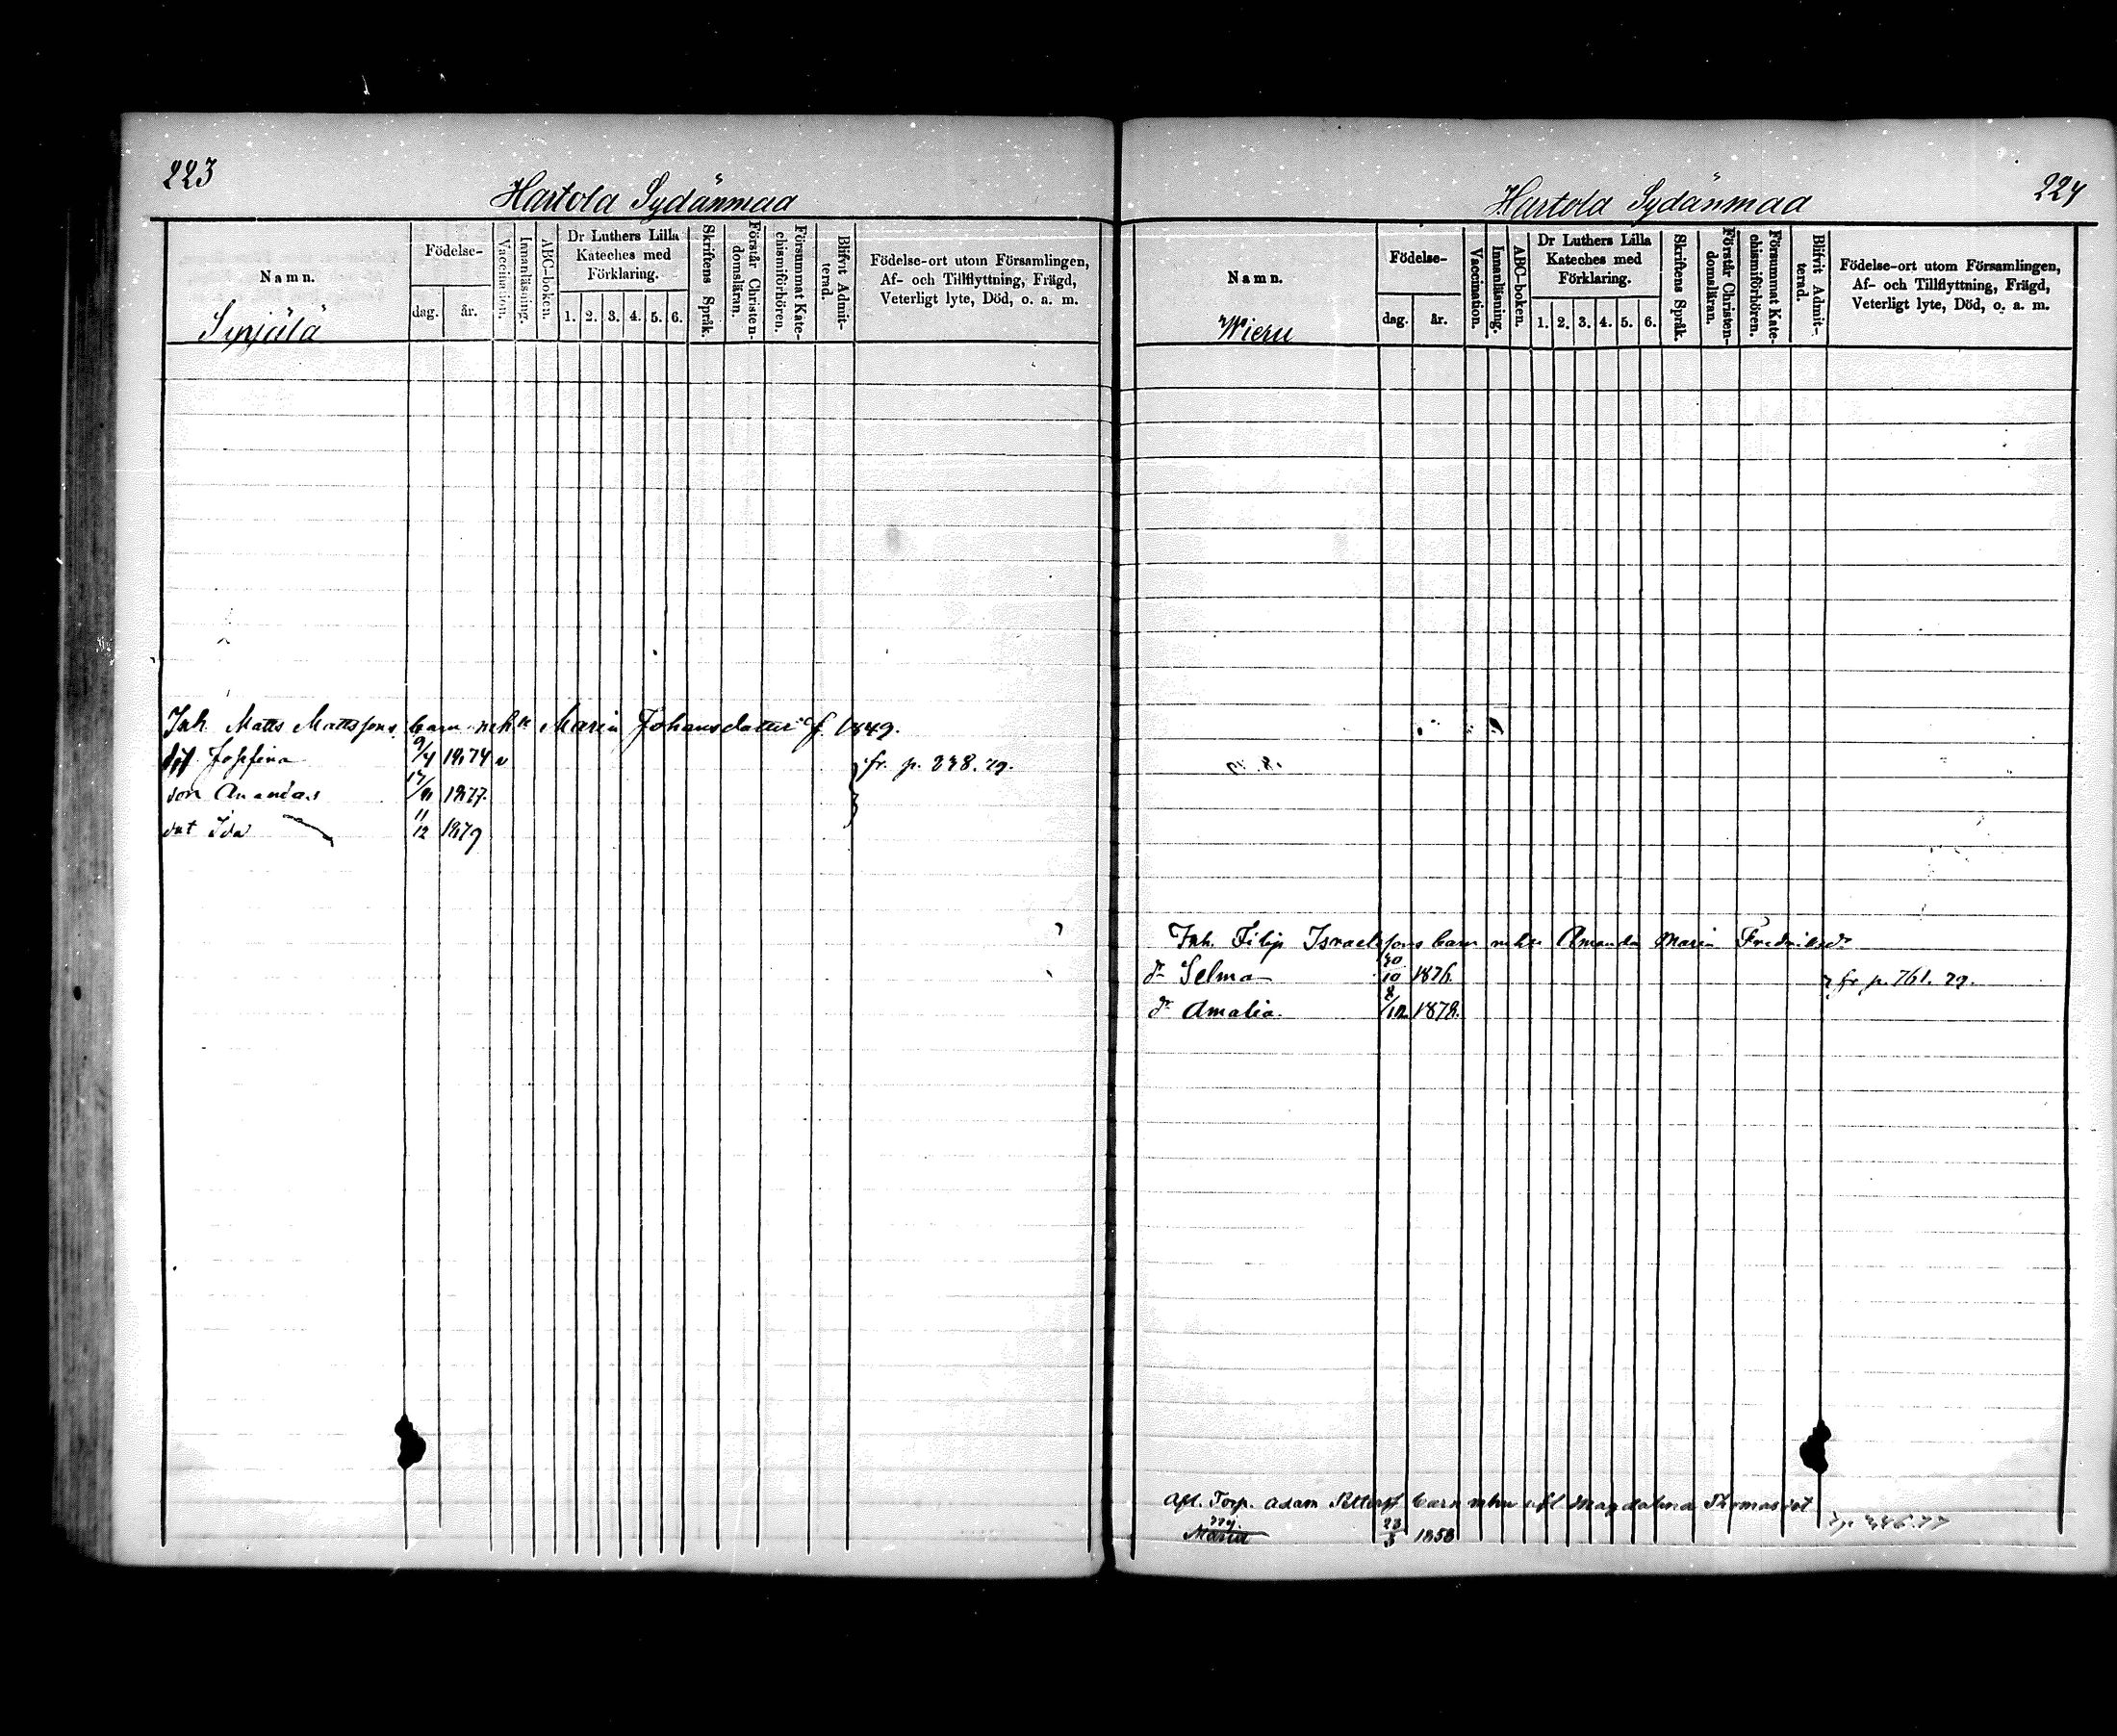 223
Hartola Sydänmaa
Namn.
Födelse-
dag.
år.
Vaccination.
Innanläsning.
ABC-boken.
Dr Luthers Lilla Kateches med Förklaring.
1. 2. 3. 4. 5. 6.
Skriftens Språk.
Förstår Christendomsläran.
Försummat Katechismiförhören.
Blifvit Admitterad.
Födelse-ort utom Församlingen,
Af- och Tillflyttning, Frägd,
Veterligt lyte, Död, o. a. m.
Inh. Matts Mattssons barn m h u Maria Johansdotter f. 1849.
Josefina 9/4 1874 v fr. p. 238. 79.
son Ananias 1877.
dot Ida 11/12 1879
Hartola Sydänmaa
224
Namn.
Wieru
Födelse-
dag.
år.
Vaccination.
Innanläsning.
ABC-boken.
Dr Luthers Lilla Kateches med Förklaring.
1. 2. 3. 4. 5. 6.
Skriftens Språk.
Förstår Christendomsläran.
Försummat Katechismiförhören.
Blifvit Admitterad.
Födelse-ort utom Församlingen,
Af- och Tillflyttning, Frägd,
Veterligt lyte, Död, o. a. m.
Inh. Filip Israelssons barn mhu Amanda Maria Fredriksdr
dr Selma 30/10 1876. fr p. 761. 79.
dr Amalia. 8/12 1878.
Afl. Torp. Adam barn mhu afl Magdalena Thomasdot
Maria 23/3 1858